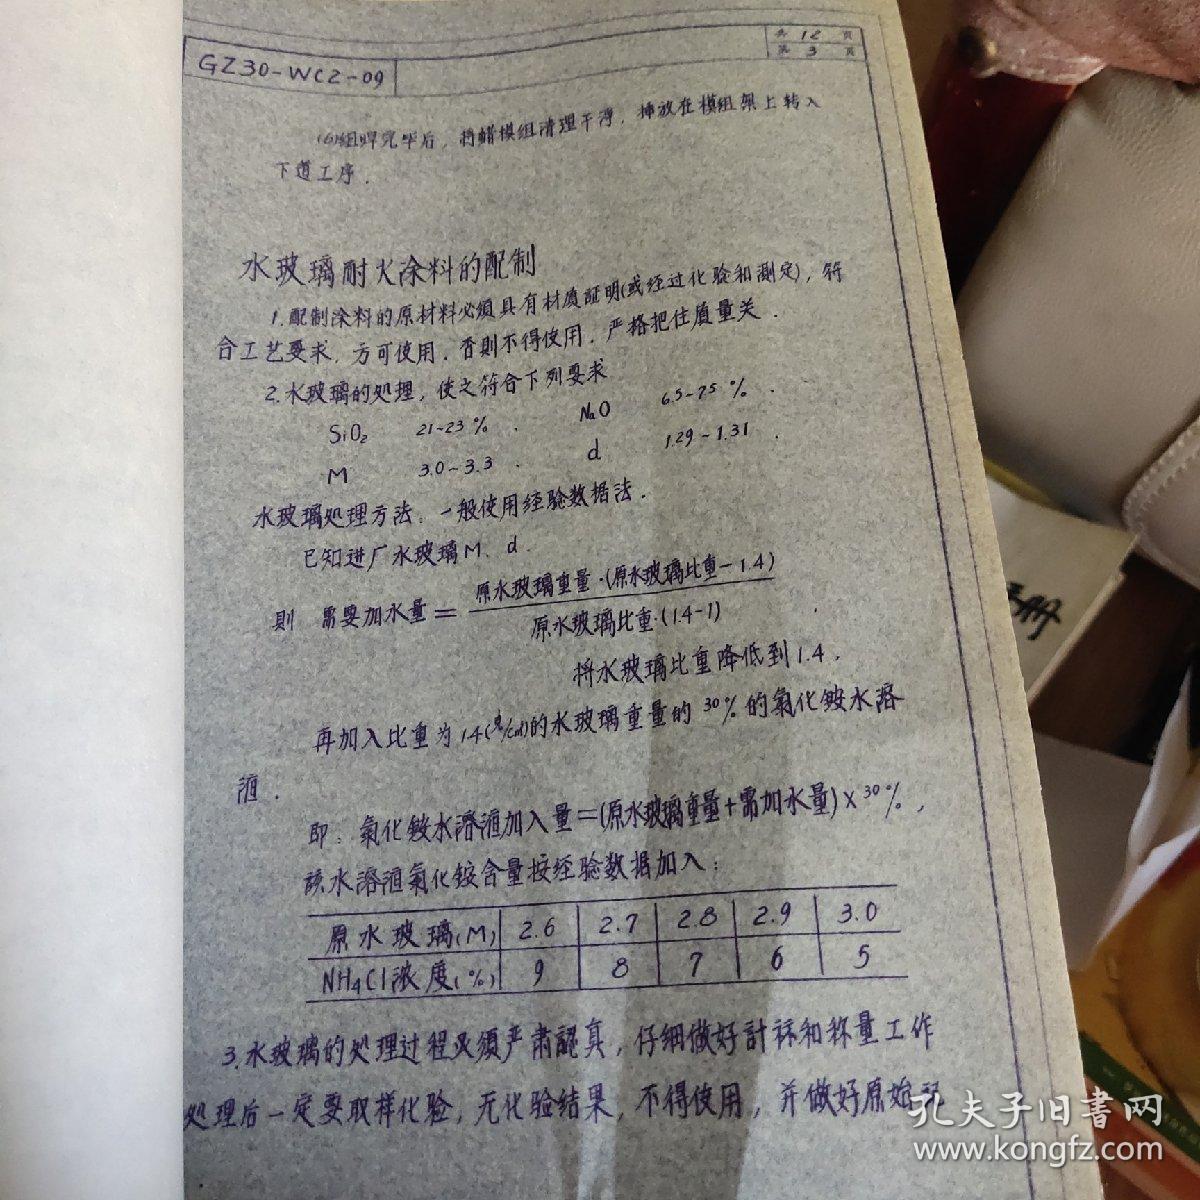 共 12 页
第 3 页
GZ30-WCZ-09
(6)组焊完毕后，将蜡模组清理干净，挿放在模组架上转入
下道工序．
水玻璃耐火涂料的配制
1.配制涂料的原材料必須具有材质証明(或经过化验和測定)，符
合工艺要求，方可使用，否則不得使用，严格把住质量关．
2.水玻璃的处理，使之符合下列要求
SiO₂ 21~23 % . NaO 6.5~7.5 % .
M 3.0~3.3 . d 1.29~1.31 .
水玻璃处理方法：一般使用经验数据法．
已知进厂水玻璃M、d．
則 需要加水量＝ 原水玻璃重量·(原水玻璃比重－1.4)
原水玻璃比重·(1.4-1)
将水玻璃比重降低到1.4．
再加入比重为1.4(g/cm³)的水玻璃重量的30%的氯化銨水溶
液．
即：氯化銨水溶液加入量＝(原水玻璃重量+需加水量)×30%，
該水溶液氯化銨含量按经验数据加入：
原水玻璃(M) 2.6 2.7 2.8 2.9 3.0
NH₄Cl浓度(%) 9 8 7 6 5
3.水玻璃的处理过程必须严肃認真，仔细做好計标和称量工作
处理后一定要取样化验，无化验结果，不得使用，并做好原始
册
孔夫子旧书网
www.kongfz.com